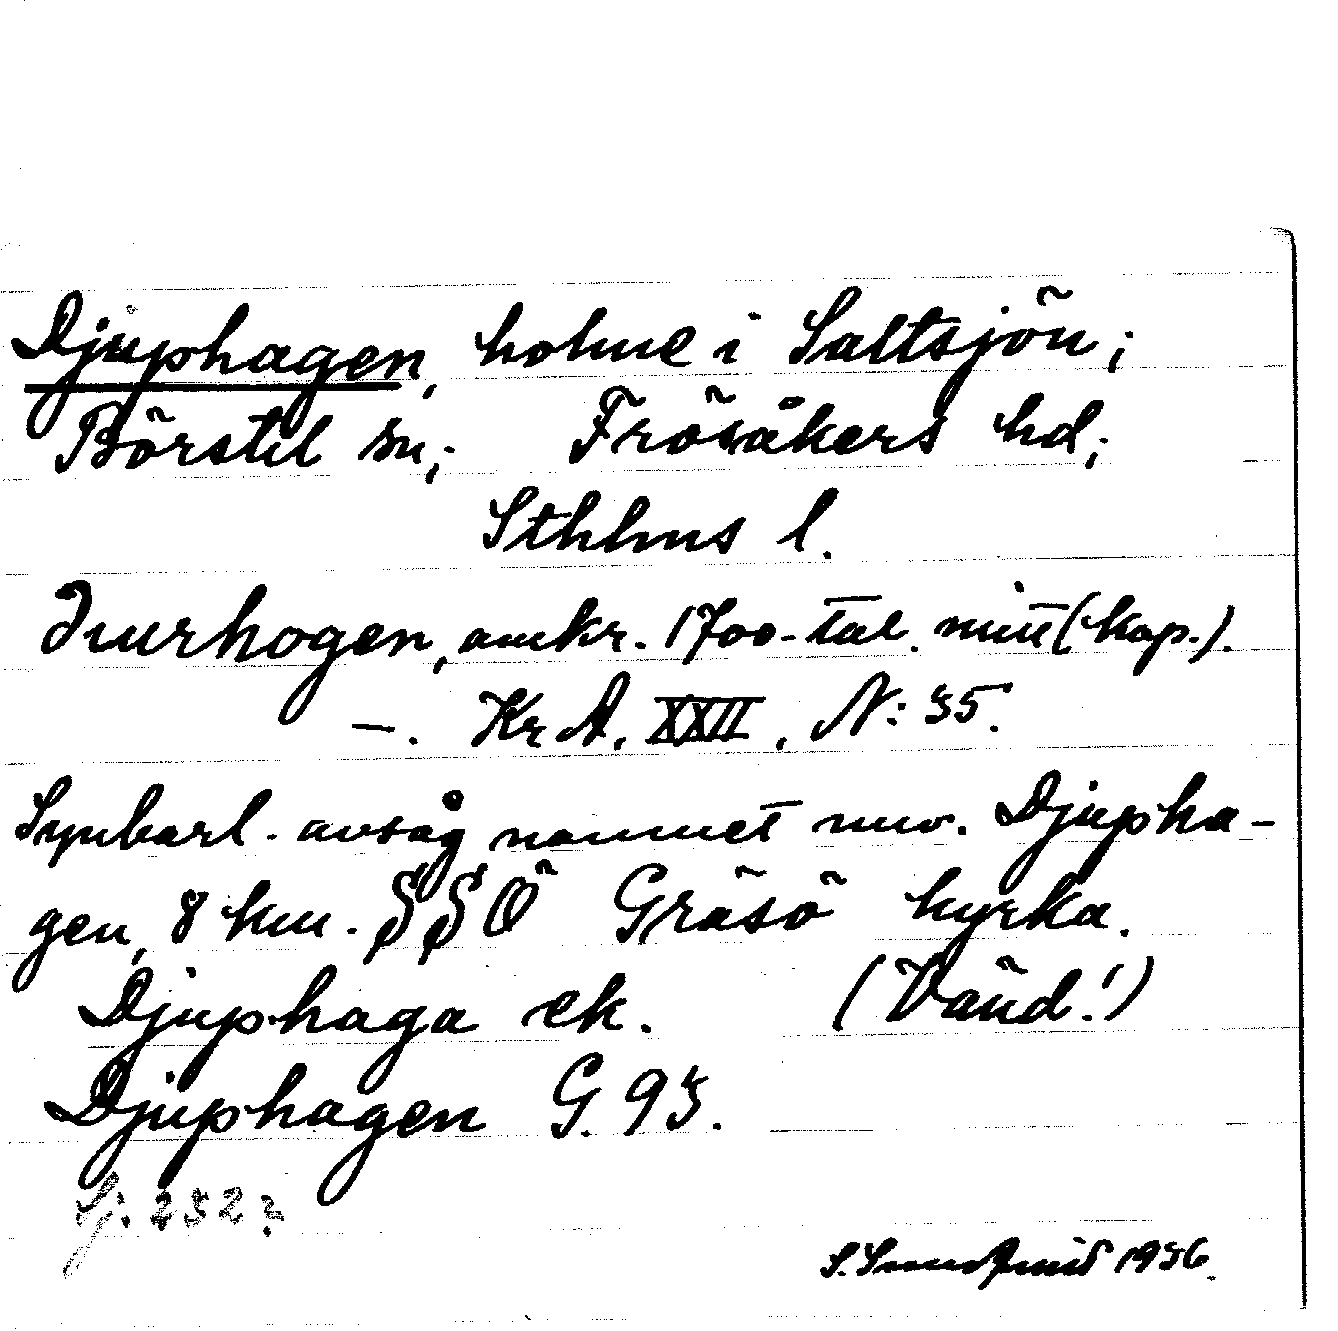 Djuphagen, holme i Saltsjön;
Börstil sn; Frösåkers hd;
Sthlms l.
Diurhogen, omkr. 1700-tal. mitt (kop.).
–. KrA. XXII, N: 35.
Synbarl. avsåg namnet nuv. Djupha-
gen, 8 km. SSÖ Gräsö kyrka.
Djuphaga ek. (Vänd!)
Djuphagen G. 93.
Sj. 252
1936.